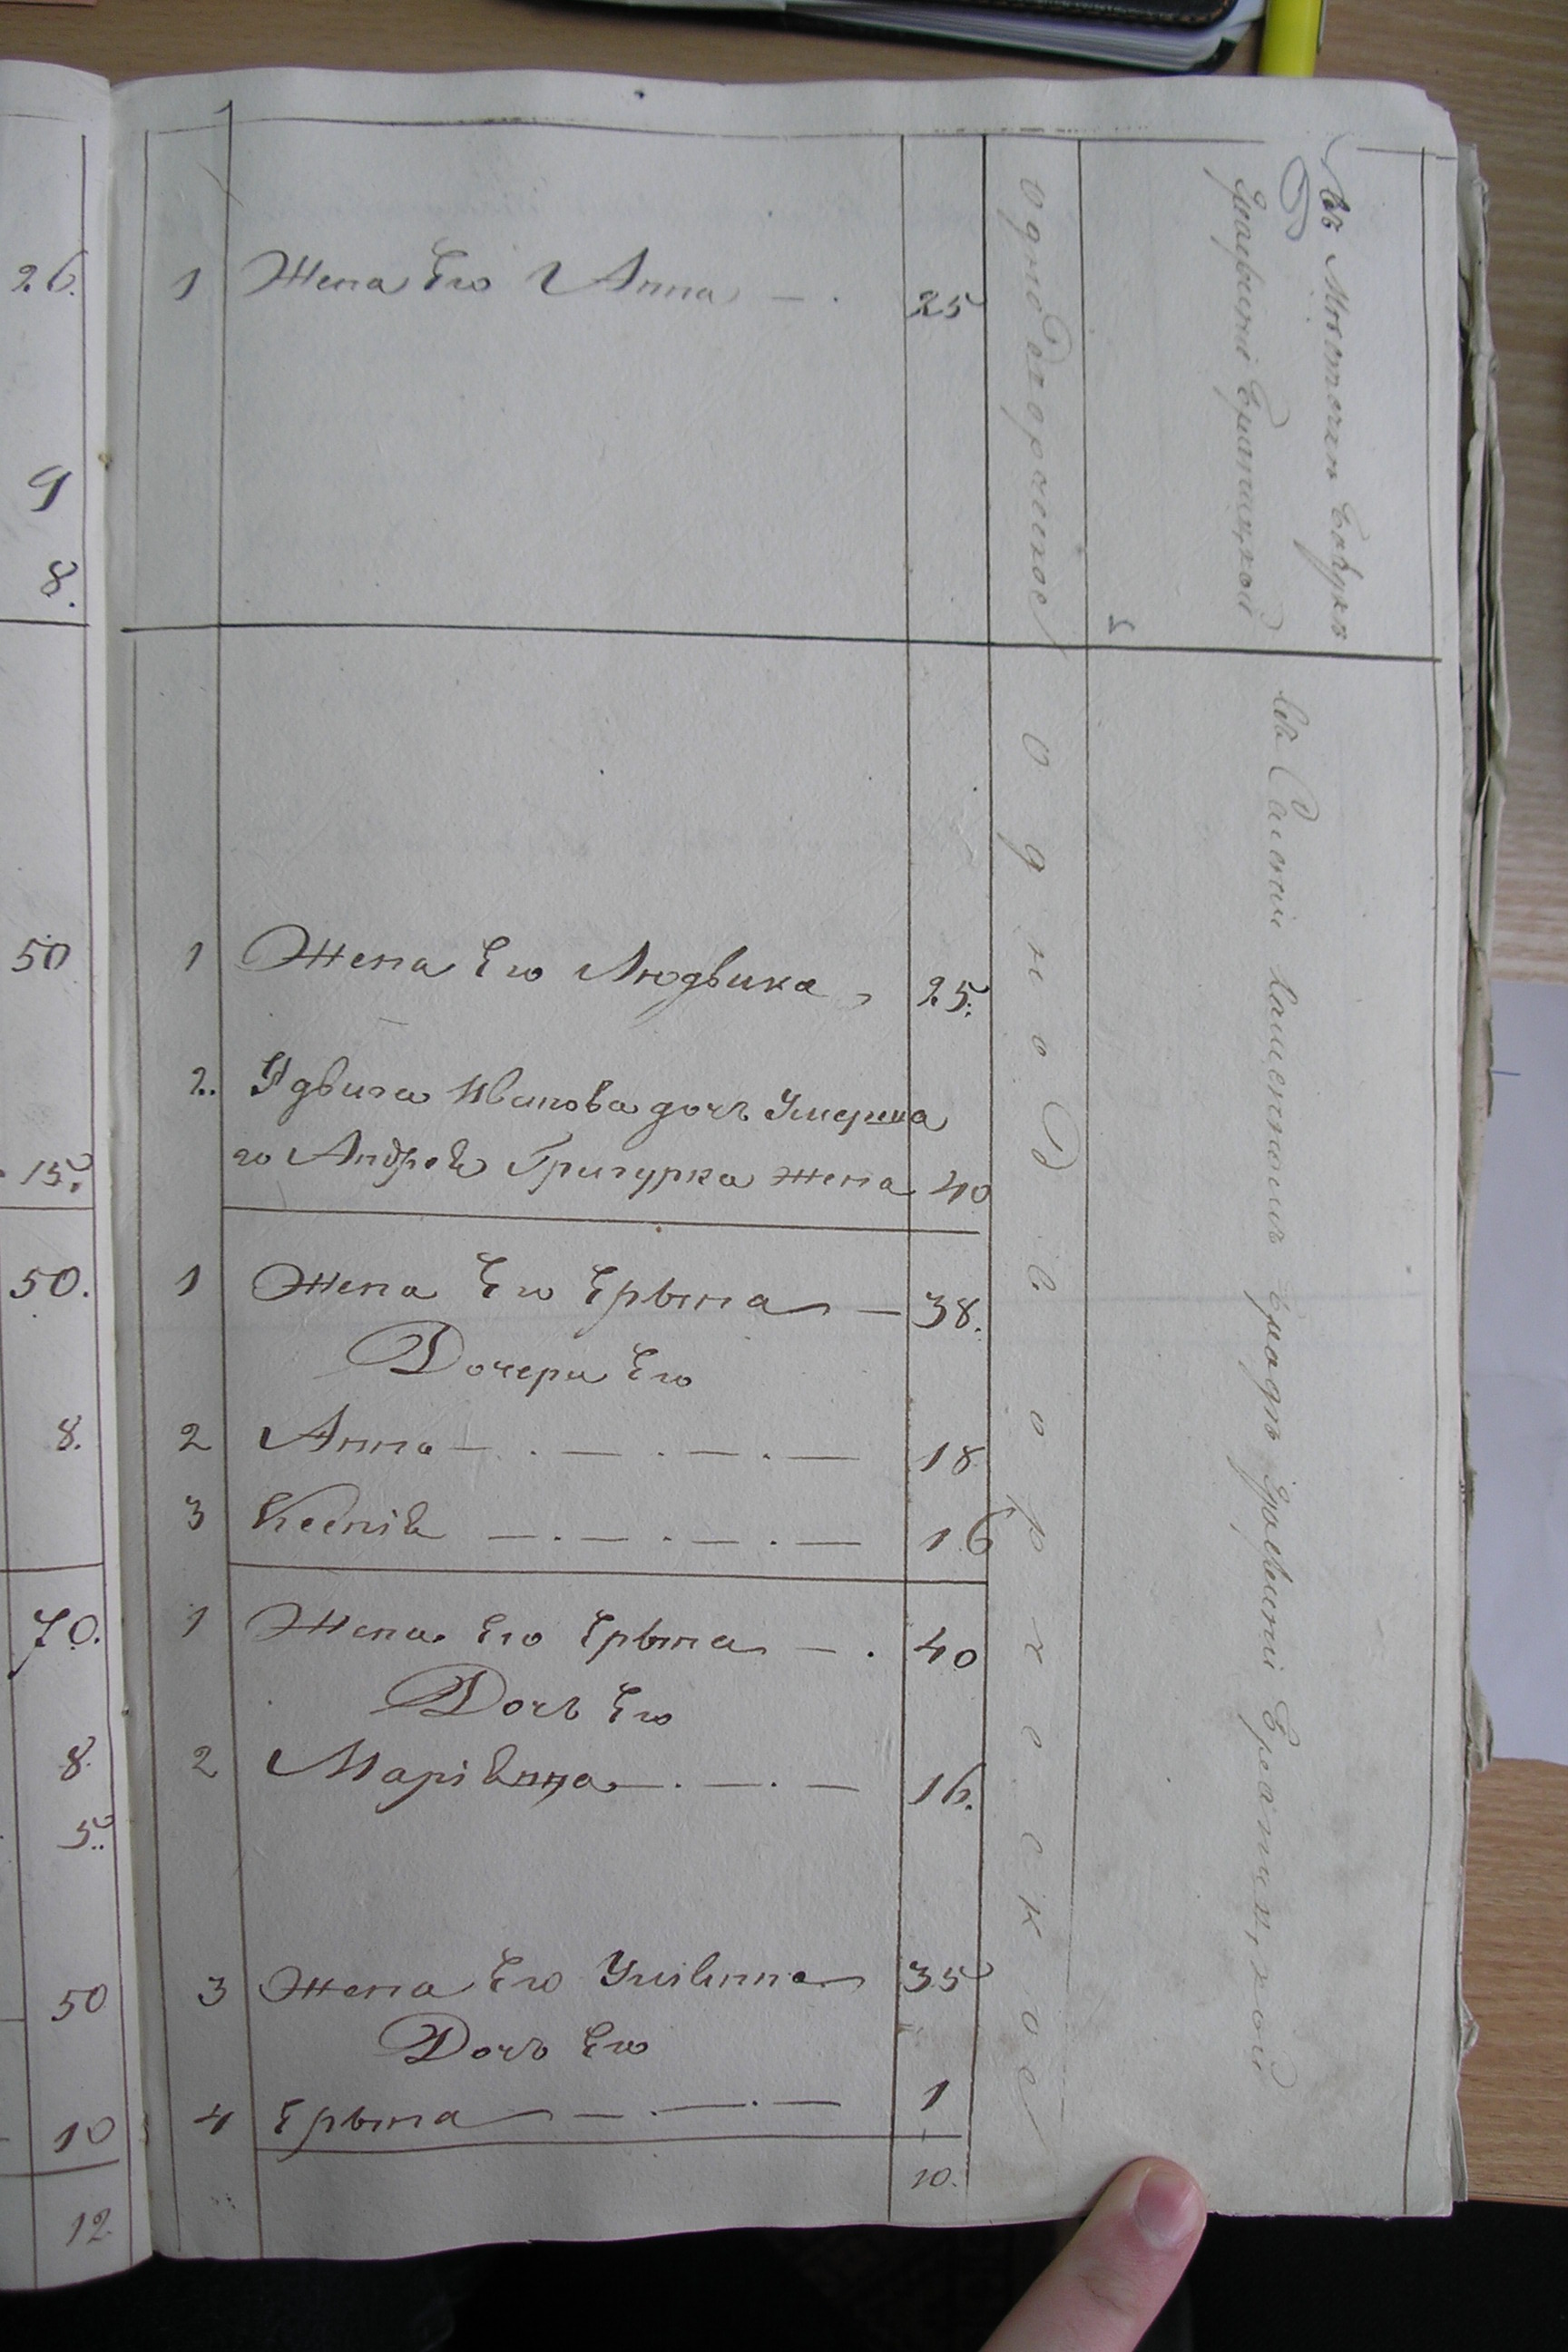 26.
9
8.
50
15.
50.
8.
70.
8.
5.
50
10
12.
1 Жена Его Анна — . 25
1 Жена Его Людвика 25.
2. Ядвига Иванова дочь Умерша
го Андрея Григурка жена 40
1 Жена Его Ерына — 38.
Дочери Его
2 Анна — . — . — . — 18
3 Ксенія — . — . — . — 16
1 Жена Его Ерына — . 40
Дочь Его
2 Маріянна — . — . — 16.
3 Жена Его Уліянна 35
Дочь Его
4 Ерына — . — . — 1
10.
Однодворческое
Однодворческое